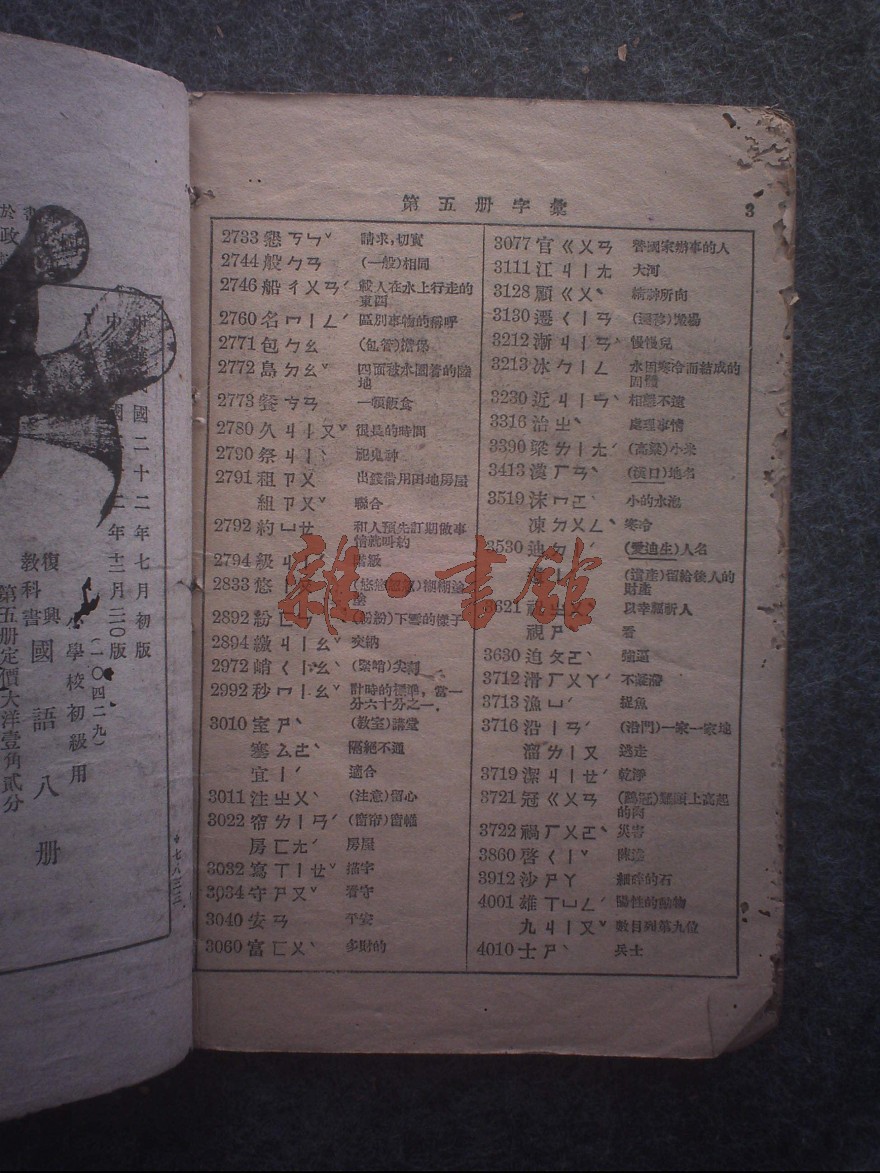 第五册字彙
3
2733 懇 ㄎㄣˇ 請求,切實
2744 般 ㄅㄢ (一般)相同
2746 船 ㄔㄨㄢˊ 載人在水上行走的
東西
2760 名 ㄇㄧㄥˊ 區別事物的稱呼
2771 包 ㄅㄠ (包管)擔保
2772 島 ㄉㄠˇ 四面被水圍著的陸
地
2773 餐 ㄘㄢ 一頓飯食
2780 久 ㄐㄧㄡˇ 很長的時間
2790 祭 ㄐㄧˋ 祀鬼神
2791 租 ㄗㄨ 出錢借用田地房屋
組 ㄗㄨˇ 聯合
2792 約 ㄩㄝ 和人預先訂期做事
情就叫約
2794 級 階級
2833 悠 糊糊塗
2892 紛 (紛紛)下雪的樣子
2894 繳 ㄐㄧㄠˇ 交納
2972 峭 ㄑㄧㄠˋ
2992 秒 ㄇㄧㄠˇ 計時的標準,當一
分六十分之一.
3010 室 ㄕˋ (教室)講堂
塞 ㄙㄜˋ 隔絕不通
宜 ㄧˊ 適合
3011 注 ㄓㄨˋ (注意)留心
3022 帘 ㄌㄧㄢˊ (窗帘)窗幔
房 ㄈㄤˊ 房屋
3032 寫 ㄒㄧㄝˇ 描字
3034 守 ㄕㄡˇ 看守
3040 安 ㄢ 平安
3060 富 ㄈㄨˋ 多財的
3077 官 ㄍㄨㄢ 替國家辦事的人
3111 江 ㄐㄧㄤ 大河
3128 顧 ㄍㄨˋ 精神所向
3130 遷 ㄑㄧㄢ (遷移)搬場
3212 漸 ㄐㄧㄢˋ 慢慢兒
3213 冰 ㄅㄧㄥ 水因寒冷而結成的
固體
3230 近 ㄐㄧㄣˋ 相離不遠
3316 治 ㄓˋ 處理事情
3390 梁 ㄌㄧㄤˊ (高粱)小米
3413 漢 ㄏㄢˋ (漢口)地名
3519 沫 ㄇㄛˋ 小的水泡
凍 ㄉㄨㄥˋ 寒冷
3530 迪 ㄉㄧˊ (愛迪生)人名
(遺產)留給後人的
財產
3621 祝 ㄓㄨˋ 以幸福祈人
視 ㄕˋ 看
3630 迫 ㄆㄛˋ 強逼
3712 滑 ㄏㄨㄚˊ 不凝滯
3713 漁 ㄩˊ 捉魚
3716 沿 ㄧㄢˊ (沿門)一家一家地
溜 ㄌㄧㄡ 逃走
3719 潔 ㄐㄧㄝˊ 乾淨
3721 冠 ㄍㄨㄢ (鷄冠)鷄頭上高起
的肉
3722 禍 ㄏㄨㄛˋ 災害
3860 啓 ㄑㄧˇ 陳述
3912 沙 ㄕㄚ 細碎的石
4001 雄 ㄒㄩㄥˊ 陽性的動物
九 ㄐㄧㄡˇ 數目列第九位
4010 士 ㄕˋ 兵士
雜·書館
國二十二年七月初版
年十二月二〇版
(一〇四二九)
小學校初級用
復興
教科書
國語八册
第五册定價大洋壹角貳分